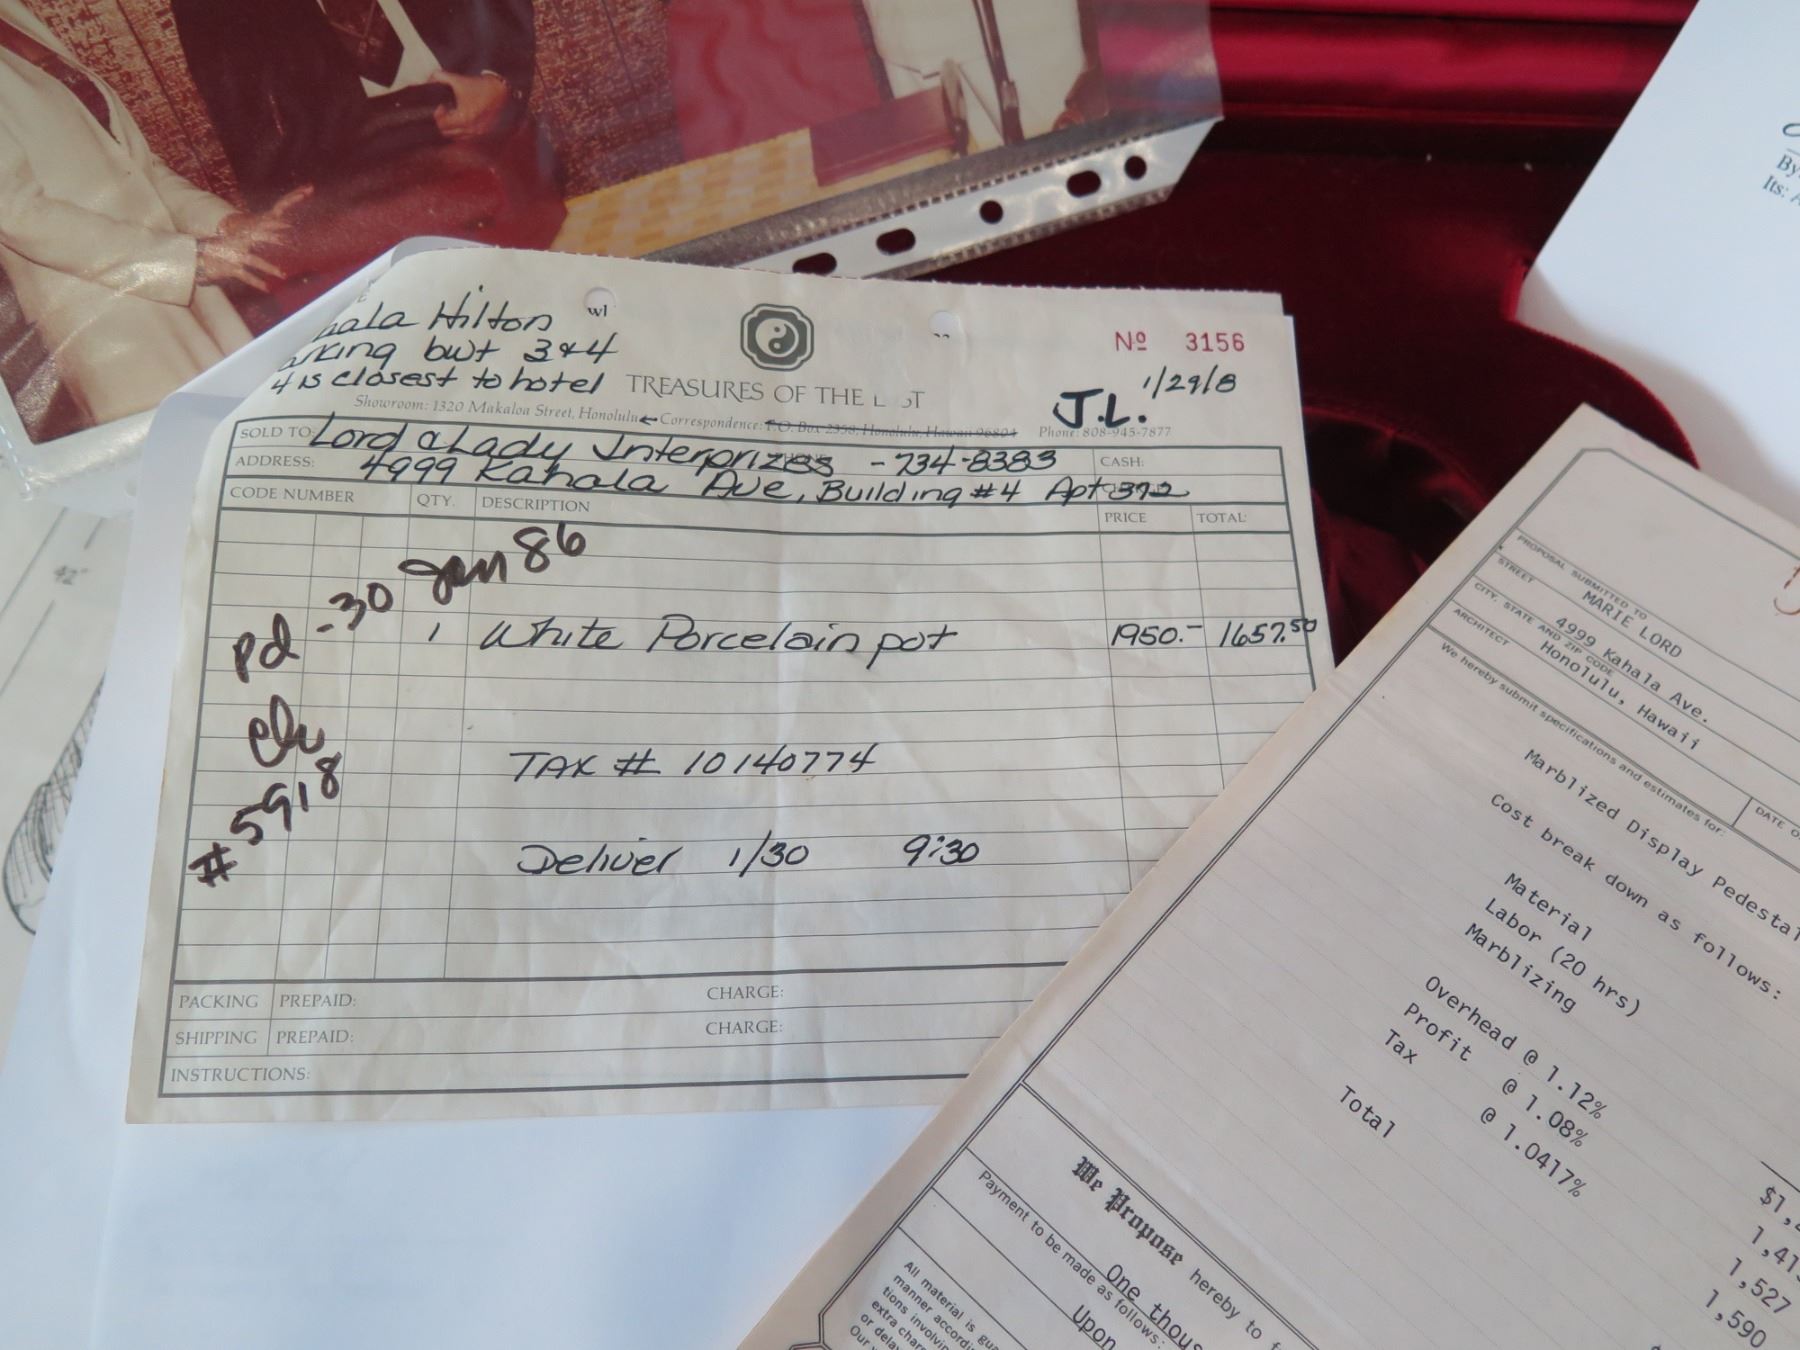 Hilton
bwt 3 & 4
4 is closest to hotel
wl
TREASURES OF THE
Nº 3156
1/29/8
J.L.
Showroom: 1320 Makaloa Street, Honolulu Correspondence: P.O. Box 2358, Honolulu, Hawaii 96804 Phone: 808-945-7877
SOLD TO: Lord & Lady Interprizes - 734-8383 CASH:
ADDRESS: 4999 Kahala Ave, Building #4 Apt 392
CODE NUMBER QTY. DESCRIPTION PRICE TOTAL
pd - 30 Jan 86
1 White Porcelain pot 1950.- 1657.50
TAX # 10140774
#5918
Deliver 1/30 9:30
PACKING PREPAID: CHARGE:
SHIPPING PREPAID: CHARGE:
INSTRUCTIONS:
42"
By:
Its:
PROPOSAL SUBMITTED TO
MARIE LORD
STREET
4999 Kahala Ave.
CITY, STATE AND ZIP CODE
Honolulu, Hawaii
ARCHITECT
DATE
We hereby submit specifications and estimates for:
Marblized Display Pedestal
Cost break down as follows:
Material
Labor (20 hrs)
Marblizing
Overhead @ 1.12%
Profit @ 1.08%
Tax @ 1.0417%
Total
$1,
1,41
1,527
1,590
We Propose hereby to
One thous
Payment to be made as follows:
Upon
All material is
manner
tions
extra
or
Our